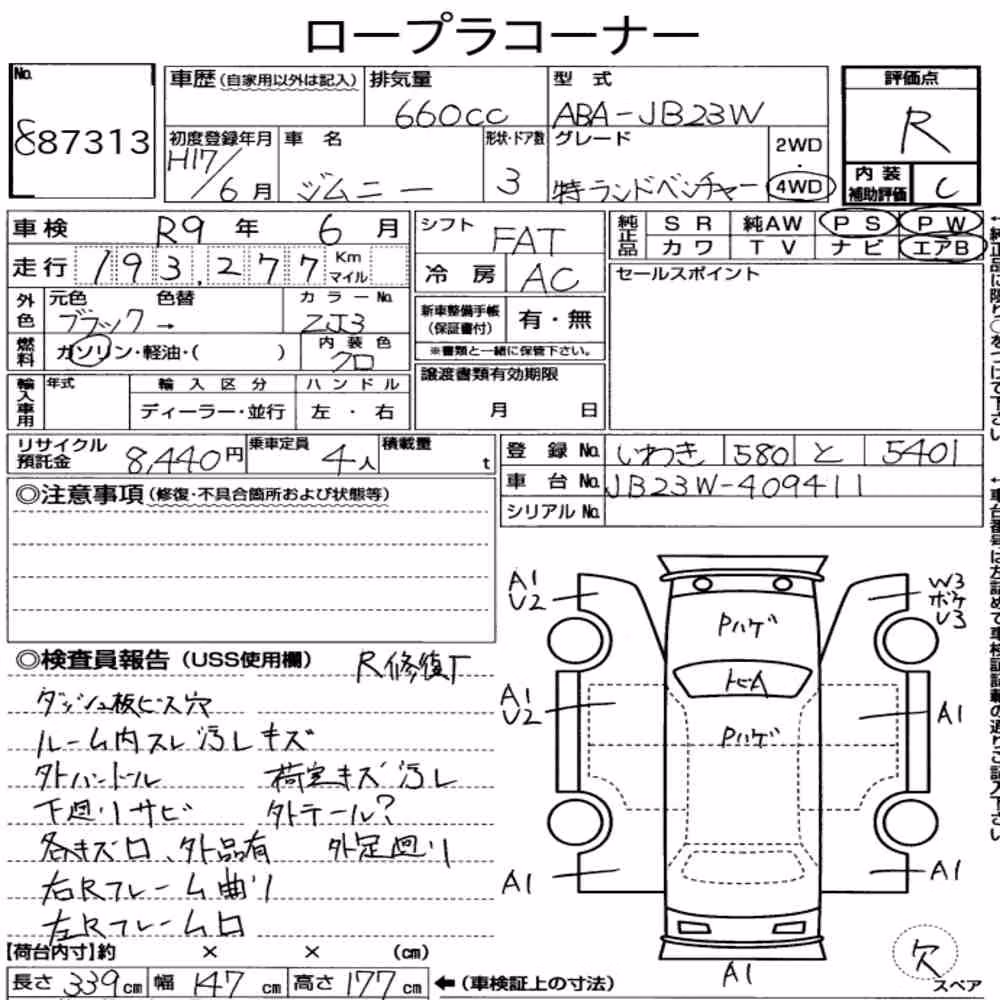 ロープラコーナー
No. 887313
車歴(自家用以外は記入)
排気量 660cc
型式 ABA-JB23W
評価点 R
初度登録年月 H17/6月
車名 ジムニー
形状・ドア数 3
グレード 特ランドベンチャー
2WD・4WD
内装補助評価 C
車検 R9年 6月
走行 193,277 Km マイル
シフト FAT
冷房 AC
純正品 SR 純AW PS PW
カワ TV ナビ エアB
セールスポイント
外色 元色 色替 カラーNo.
ブラック→ ZJ3
燃料 ガソリン・軽油・( )
内装色 クロ
新車整備手帳(保証書付) 有・無
※書類と一緒に保管下さい。
輸入車用 年式 輸入区分 ハンドル
ディーラー・並行 左・右
譲渡書類有効期限
月 日
リサイクル預託金 8,440円
乗車定員 4人
積載量 t
登録No. いわき 580 と 5401
車台No. JB23W-409411
シリアルNo.
◎注意事項(修復・不具合箇所および状態等)
◎検査員報告(USS使用欄) R修復了
ダッシュ板ビス穴
ルーム内スレ汚レキズ
外ハンドル 荷室キズ汚レ
下廻りサビ 外テール?
各キズ凹、外品有 外足廻り
右Rフレーム曲り
左Rフレーム凹
【荷台内寸】約 × × (cm)
長さ 339cm 幅 147cm 高さ 177cm ←(車検証上の寸法)
A1
U2
W3
ボケ
U3
Pハゲ
トビA
A1
U2
Pハゲ
A1
A1
A1
A1
欠
スペア